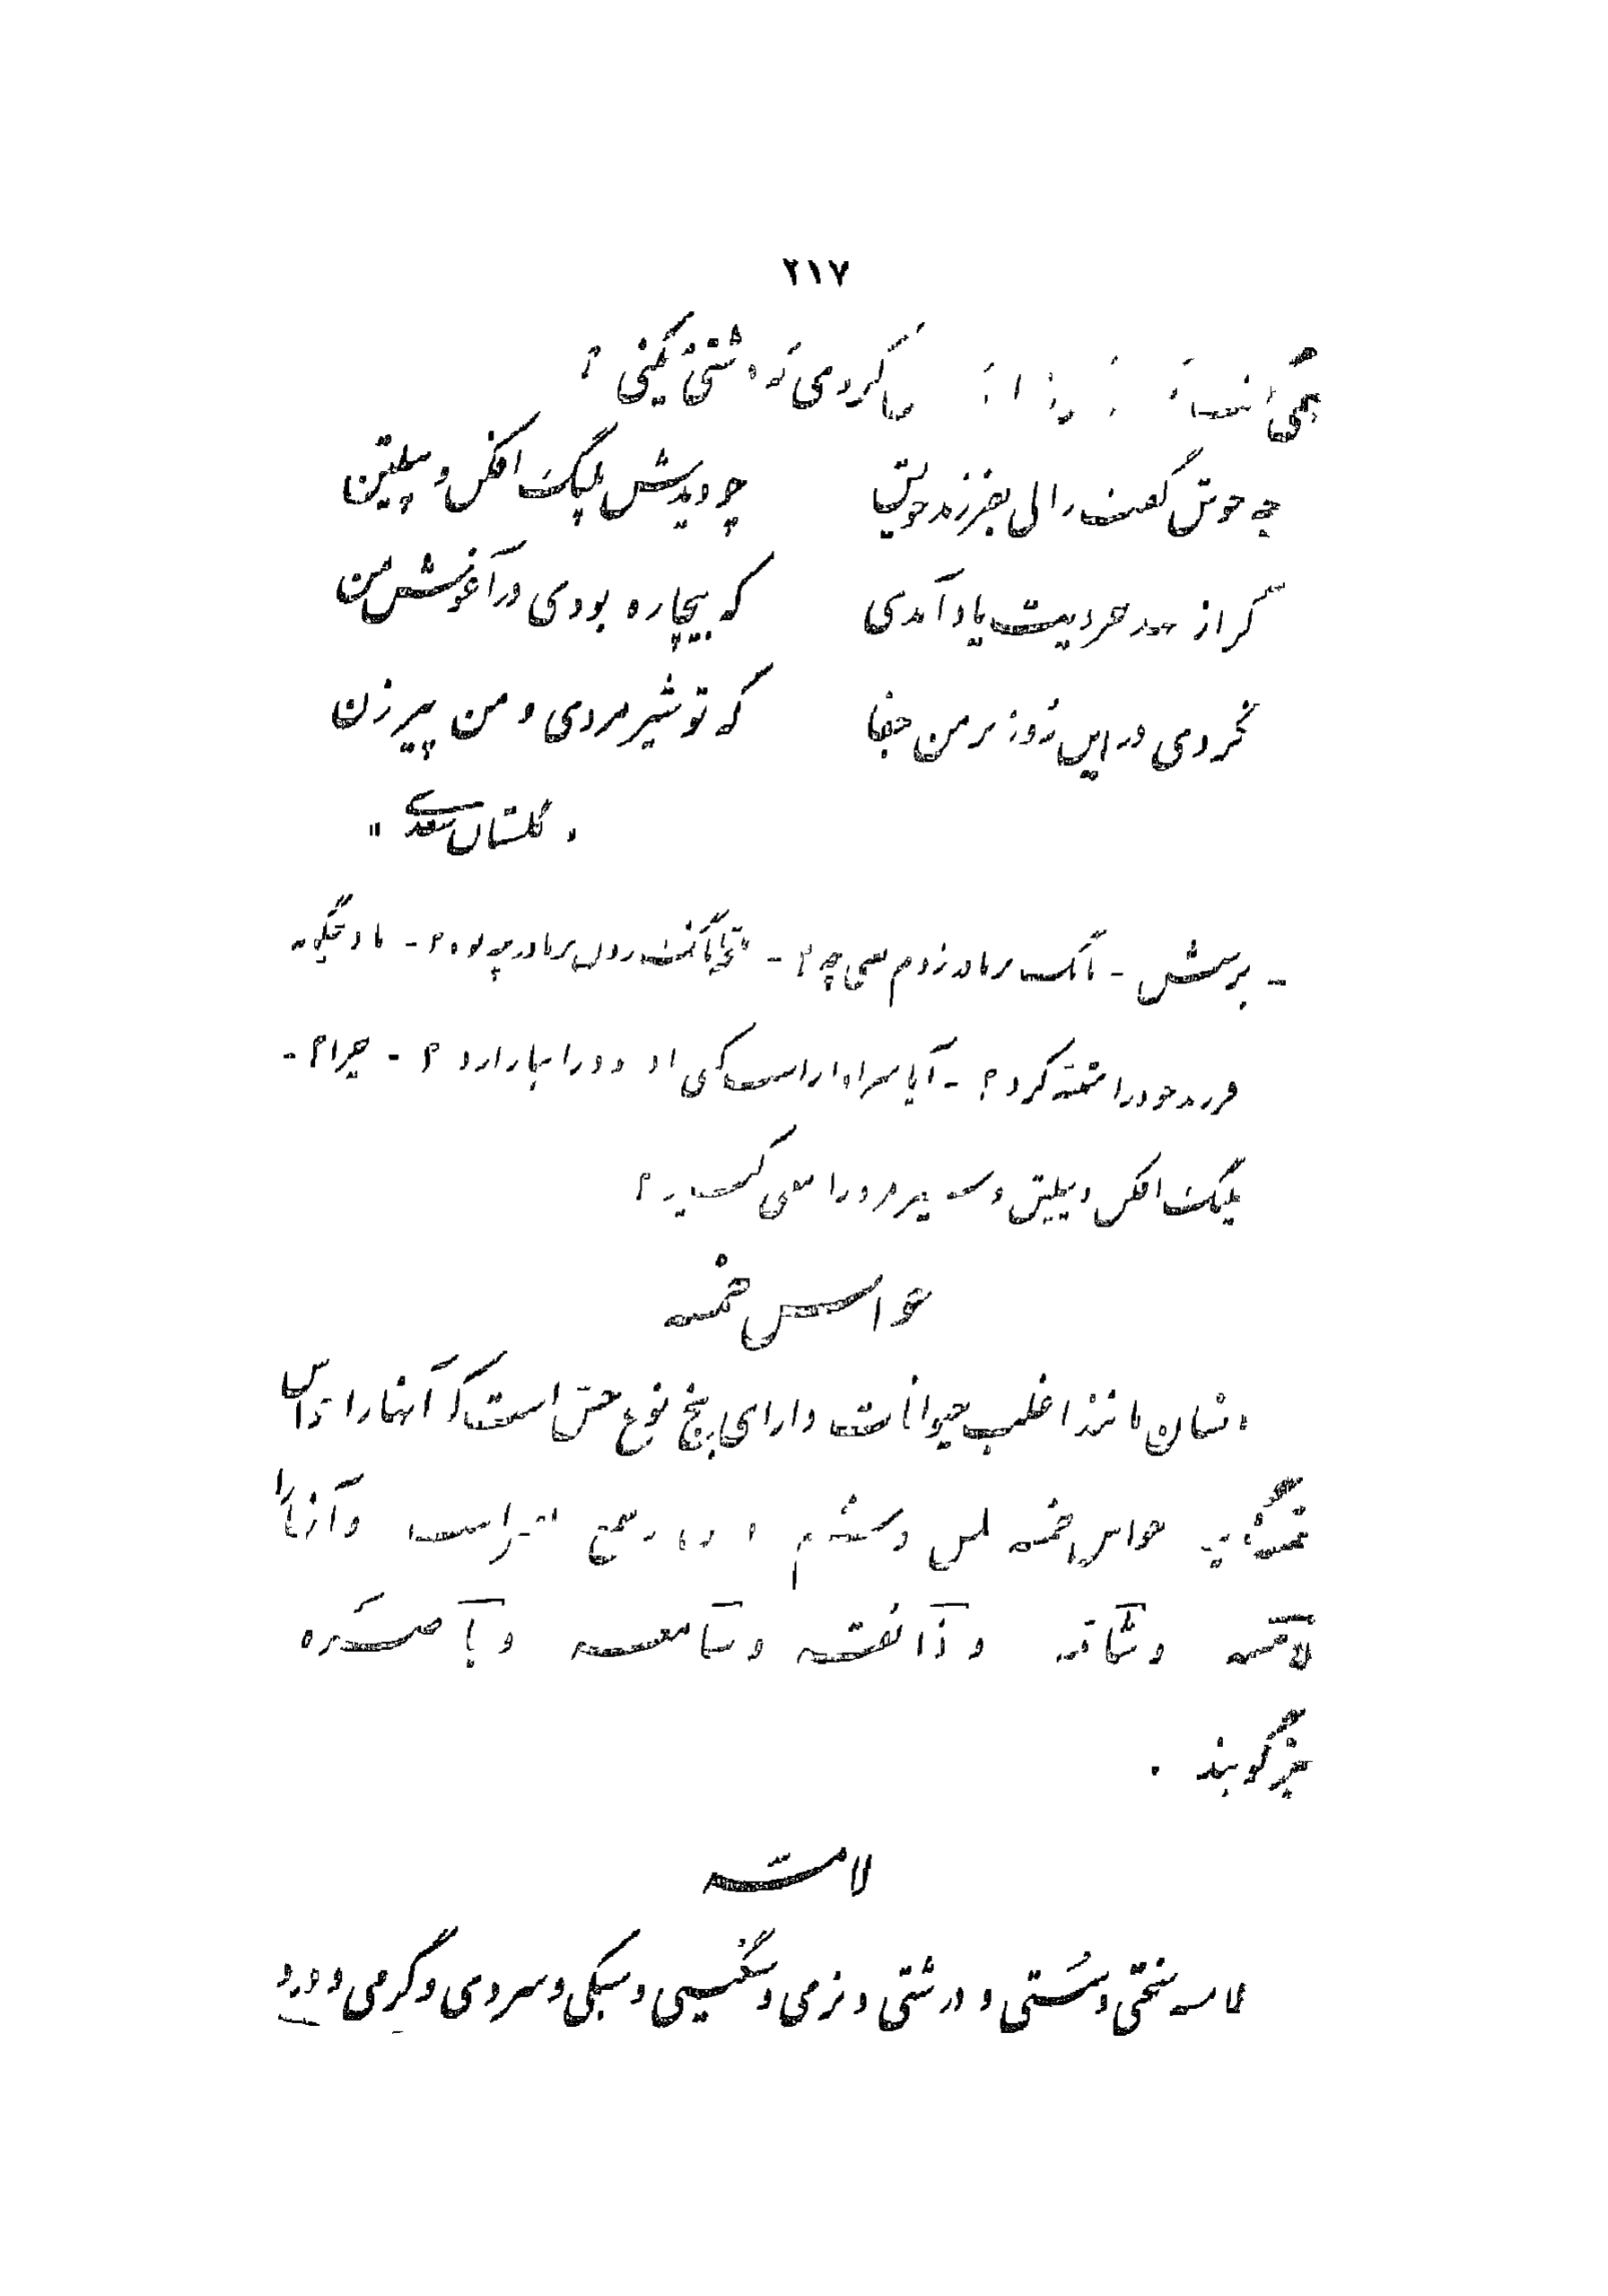 ۲۱۷
کردی که درشتی کنی ؟
چه خوش گفت زالی بفرزند خویش چو دیدش پلنگ افکن و پیلتن
گر از عهد خردیت یاد آمدی که بیچاره بودی در آغوش من
نکردی در این روز بر من جفا که تو شیر مردی و من پیر زن
« گلستان سعدی »
- پرسش - بانگ بر مادر زدم یعنی چه ؟ - بر مادر چه بود ؟ - مادر چگونه
فرزند خود را کرد ؟ - آیا سزاوار است کسی مادر خود را بیازارد ؟ - چرا ؟ -
پلنگ افکن و پیلتن و شیر مرد را معنی کنید ؟
حواس خمسه
انسان مانند اغلب حیوانات دارای پنج نوع حس است که آنها را حواس
خمسه گویند حواس خمسه لمس و شم و ذوق و سمع و بصر است و آنها را
لامسه و شامه و ذائقه و سامعه و باصره
نیز گویند .
لامسه
لامسه سختی و سستی و درشتی و نرمی و سنگینی و سبکی و سردی و گرمی و درد